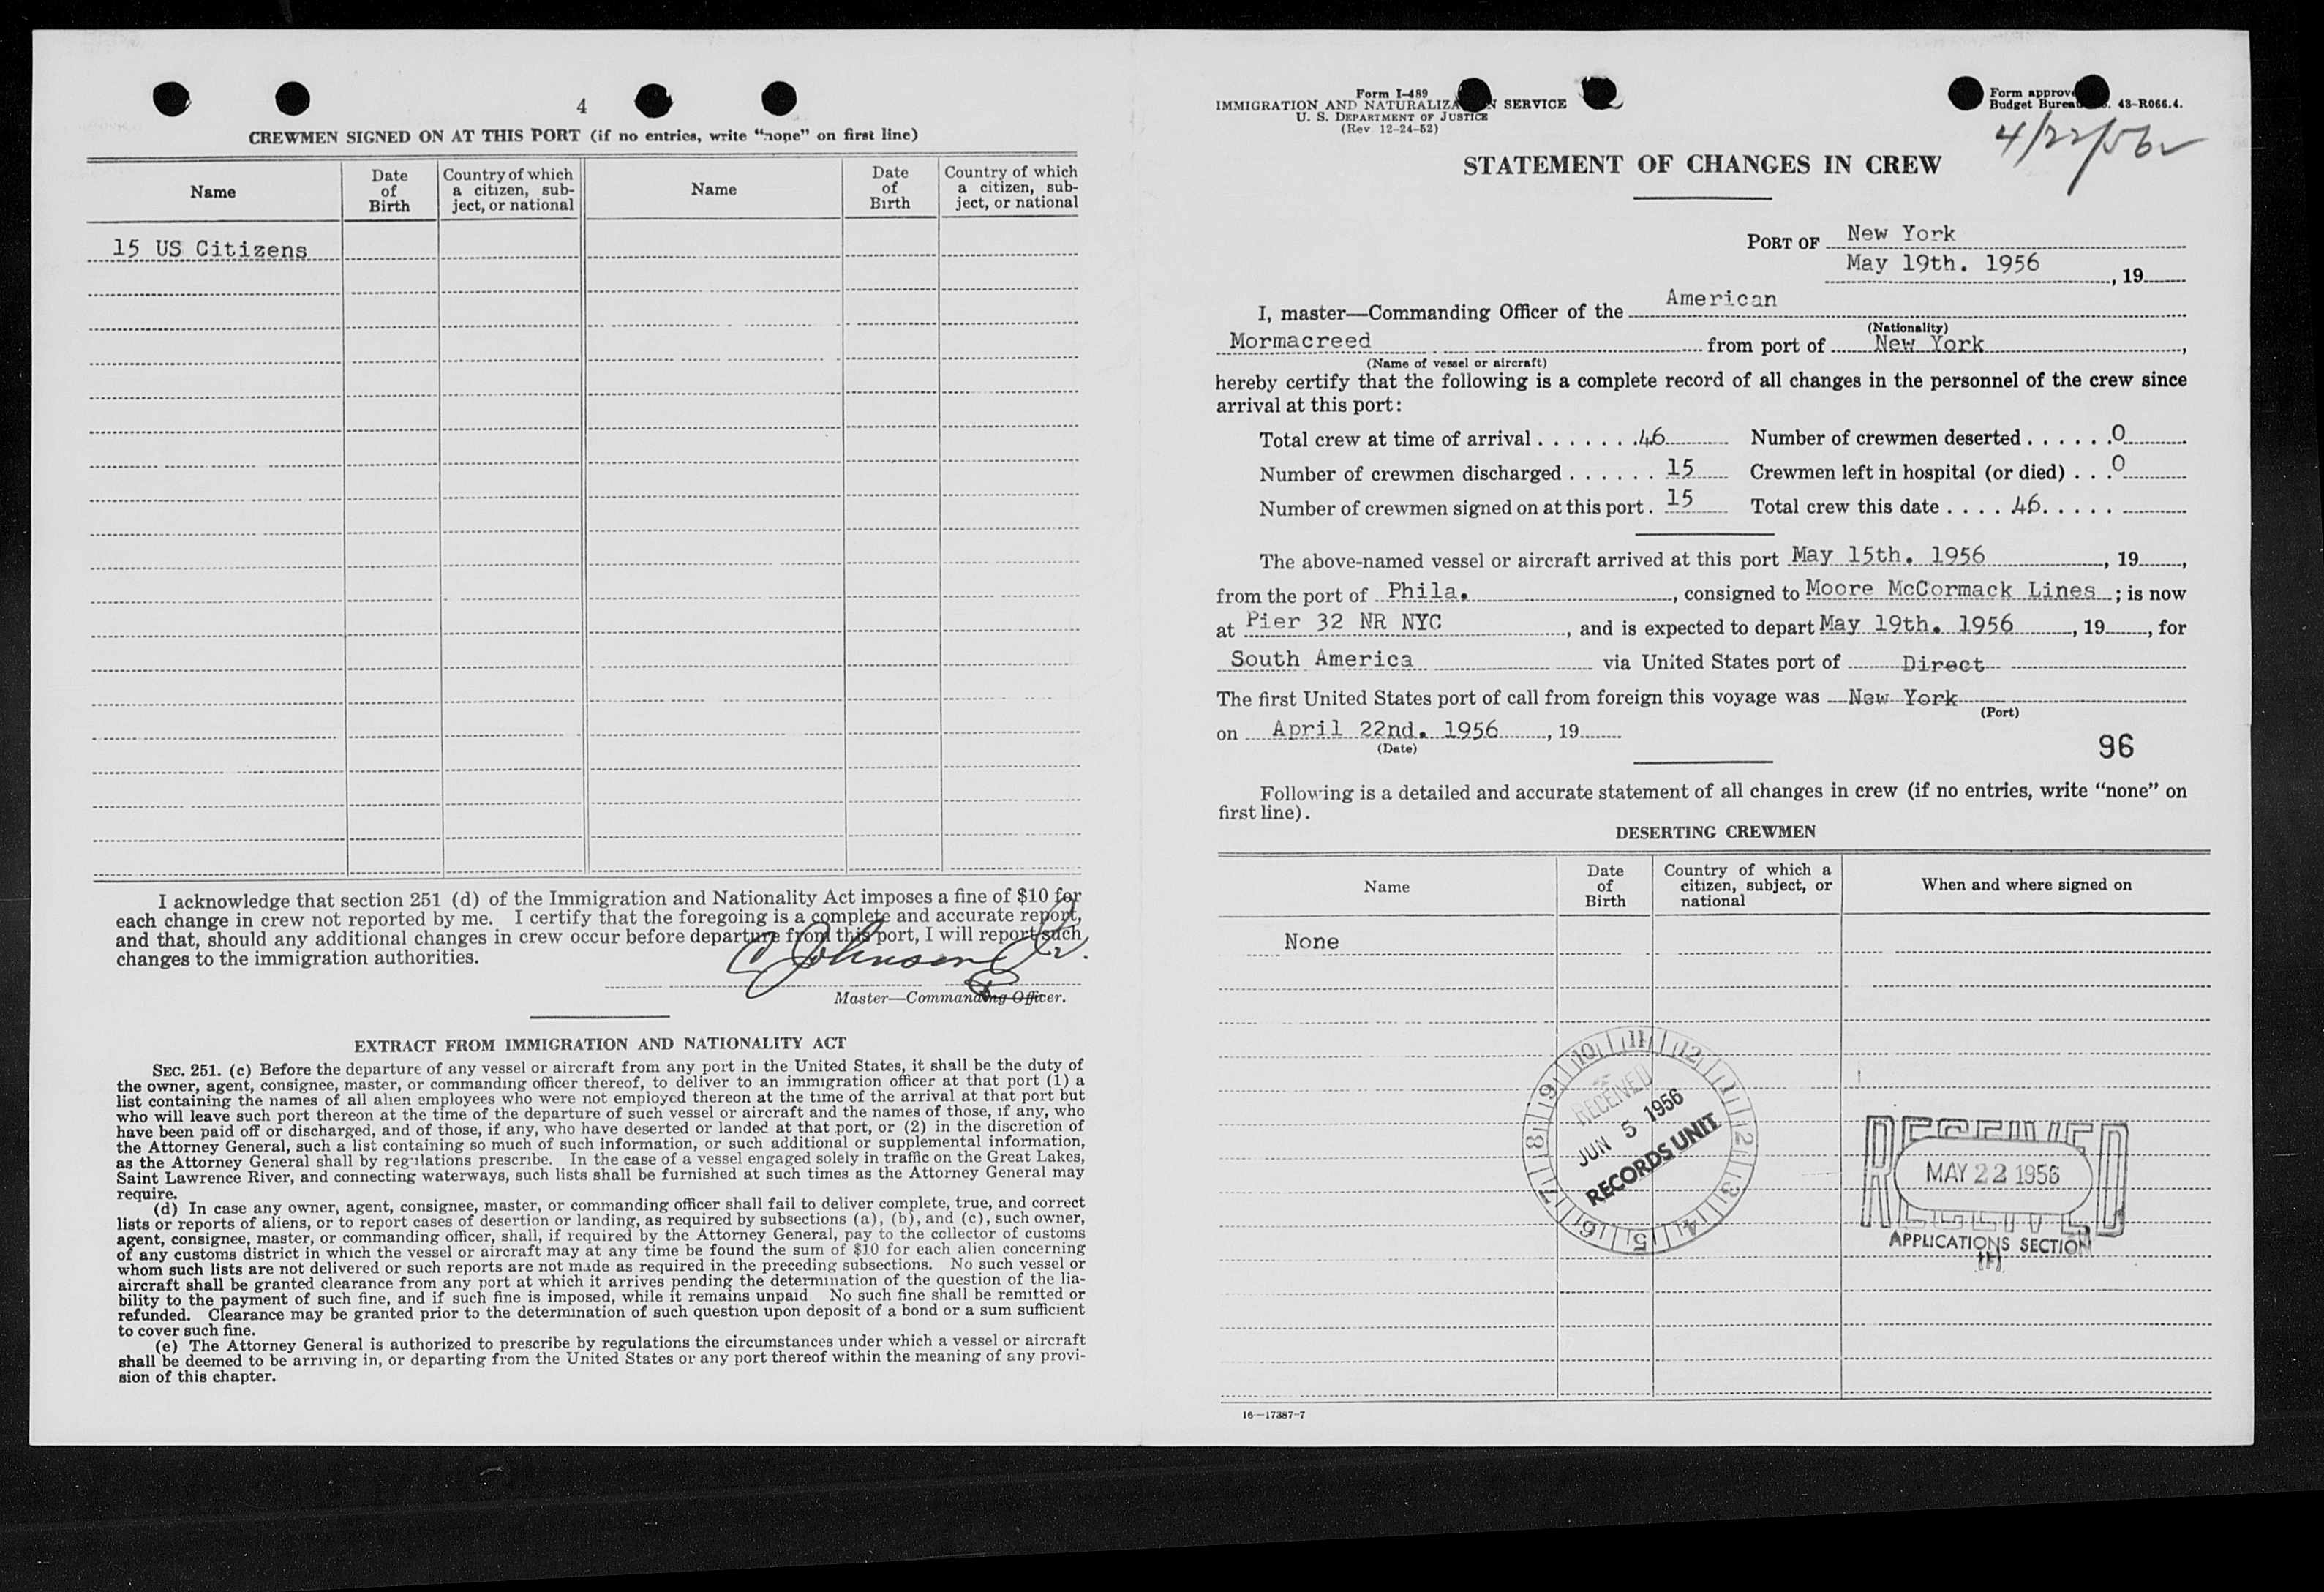 4
CREWMEN SIGNED ON AT THIS PORT (if no entries, write “none” on first line)
Name
Date of Birth
Country of which a citizen, subject, or national
Name
Date of Birth
Country of which a citizen, subject, or national
15 US Citizens
I acknowledge that section 251 (d) of the Immigration and Nationality Act imposes a fine of $10 for
each change in crew not reported by me. I certify that the foregoing is a complete and accurate report,
and that, should any additional changes in crew occur before departure from this port, I will report such
changes to the immigration authorities.
Johnson Jr.
Master—Commanding Officer.
EXTRACT FROM IMMIGRATION AND NATIONALITY ACT
SEC. 251. (c) Before the departure of any vessel or aircraft from any port in the United States, it shall be the duty of
the owner, agent, consignee, master, or commanding officer thereof, to deliver to an immigration officer at that port (1) a
list containing the names of all alien employees who were not employed thereon at the time of the arrival at that port but
who will leave such port thereon at the time of the departure of such vessel or aircraft and the names of those, if any, who
have been paid off or discharged, and of those, if any, who have deserted or landed at that port, or (2) in the discretion of
the Attorney General, such a list containing so much of such information, or such additional or supplemental information,
as the Attorney General shall by regulations prescribe. In the case of a vessel engaged solely in traffic on the Great Lakes,
Saint Lawrence River, and connecting waterways, such lists shall be furnished at such times as the Attorney General may
require.
(d) In case any owner, agent, consignee, master, or commanding officer shall fail to deliver complete, true, and correct
lists or reports of aliens, or to report cases of desertion or landing, as required by subsections (a), (b), and (c), such owner,
agent, consignee, master, or commanding officer, shall, if required by the Attorney General, pay to the collector of customs
of any customs district in which the vessel or aircraft may at any time be found the sum of $10 for each alien concerning
whom such lists are not delivered or such reports are not made as required in the preceding subsections. No such vessel or
aircraft shall be granted clearance from any port at which it arrives pending the determination of the question of the lia-
bility to the payment of such fine, and if such fine is imposed, while it remains unpaid No such fine shall be remitted or
refunded. Clearance may be granted prior to the determination of such question upon deposit of a bond or a sum sufficient
to cover such fine.
(e) The Attorney General is authorized to prescribe by regulations the circumstances under which a vessel or aircraft
shall be deemed to be arriving in, or departing from the United States or any port thereof within the meaning of any provi-
sion of this chapter.
Form I-489
IMMIGRATION AND NATURALIZA N SERVICE
U. S. DEPARTMENT OF JUSTICE
(Rev 12-24-52)
Form approve
Budget Bureau . 43-R066.4.
4/22/56
STATEMENT OF CHANGES IN CREW
PORT OF New York
May 19th. 1956, 19
I, master—Commanding Officer of the American
(Nationality)
Mormacreed from port of New York,
(Name of vessel or aircraft)
hereby certify that the following is a complete record of all changes in the personnel of the crew since
arrival at this port:
Total crew at time of arrival . . . . . . . 46 Number of crewmen deserted . . . . . . 0
Number of crewmen discharged . . . . . . 15 Crewmen left in hospital (or died) . . . 0
Number of crewmen signed on at this port . 15 Total crew this date . . . . 46. . . . .
The above-named vessel or aircraft arrived at this port May 15th. 1956, 19,
from the port of Phila., consigned to Moore McCormack Lines; is now
at Pier 32 NR NYC, and is expected to depart May 19th. 1956, 19, for
South America via United States port of Direct
The first United States port of call from foreign this voyage was New York
(Port)
on April 22nd. 1956, 19
(Date)
96
Following is a detailed and accurate statement of all changes in crew (if no entries, write “none” on
first line).
DESERTING CREWMEN
Name
Date of Birth
Country of which a citizen, subject, or national
When and where signed on
None
10 11 12 1 2 3 4 5 6 7 8 9
RECEIVED
JUN 5 1956
RECORDS UNIT
RECEIVED
MAY 22 1956
RECEIVED
APPLICATIONS SECTION
16—17387-7